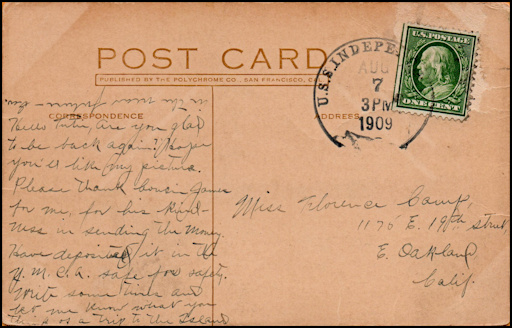 POST CARD
PUBLISHED BY THE POLYCHROME CO., SAN FRANCISCO, C
CORRESPONDENCE
ADDRESS
U.S.S. INDEPE
AUG
7
3PM
1909
U.S. POSTAGE
ONE CENT
Hello are you glad
to be back again? Hope
you'll like my picture.
Please thank cousin James
for me, for his kind-
ness in sending the money.
Have deposited it in the
Y.M.C.A. safe for safety.
Write some time and
let me know what you
think of a trip to the Island
Miss Florence Camp,
1175 E. 19th street,
E. Oakland
Calif.